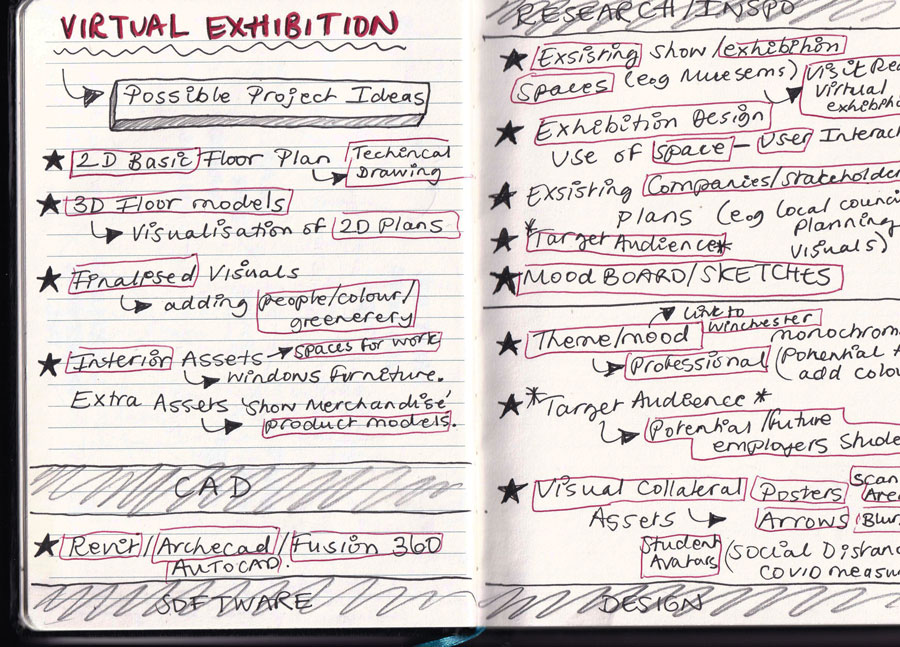 VIRTUAL EXHIBITION
Possible Project Ideas
2D Basic Floor Plan Techincal
Drawing
3D Floor models
Visualisation of 2D Plans
Finalised Visuals
adding people/colour/
greenerery
Interior Assets spaces for work
windows furniture.
Extra Assets 'show Merchandise'
product models.
CAD
Revit/Archecad/Fusion 360
AUTOCAD.
SOFTWARE
RESEARCH/INSPO
Exsisting show/exhibition
spaces (eog Muesems) Visit Rea
virtual
exhibitio
Exhibition Design
Use of space - User Interact
Exsisting Companies/Stakeholder
plans (eog local counci
planning
visuals)
*Target Audience*
MOOD BOARD/SKETCHES
Link to
Winchester
Theme/mood monochrom
Professional (potential t
add colou
*Target Audience*
Potential/future
employers stude
Visual Collateral Posters Scan
Area
Assets Arrows Blur
Student
Avatars (Social Distan
COVID measu
DESIGN